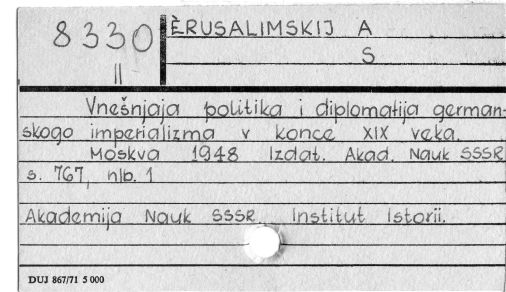 8330
II
ÈRUSALIMSKIJ A
S
Vnešnjaja politika i diplomatija german-
skogo imperializma v konce XIX veka.
Moskva 1948 Izdat. Akad. Nauk SSSR
s. 767, nlb. 1
Akademija Nauk SSSR Institut Istorii.
DUJ 867/71 5 000